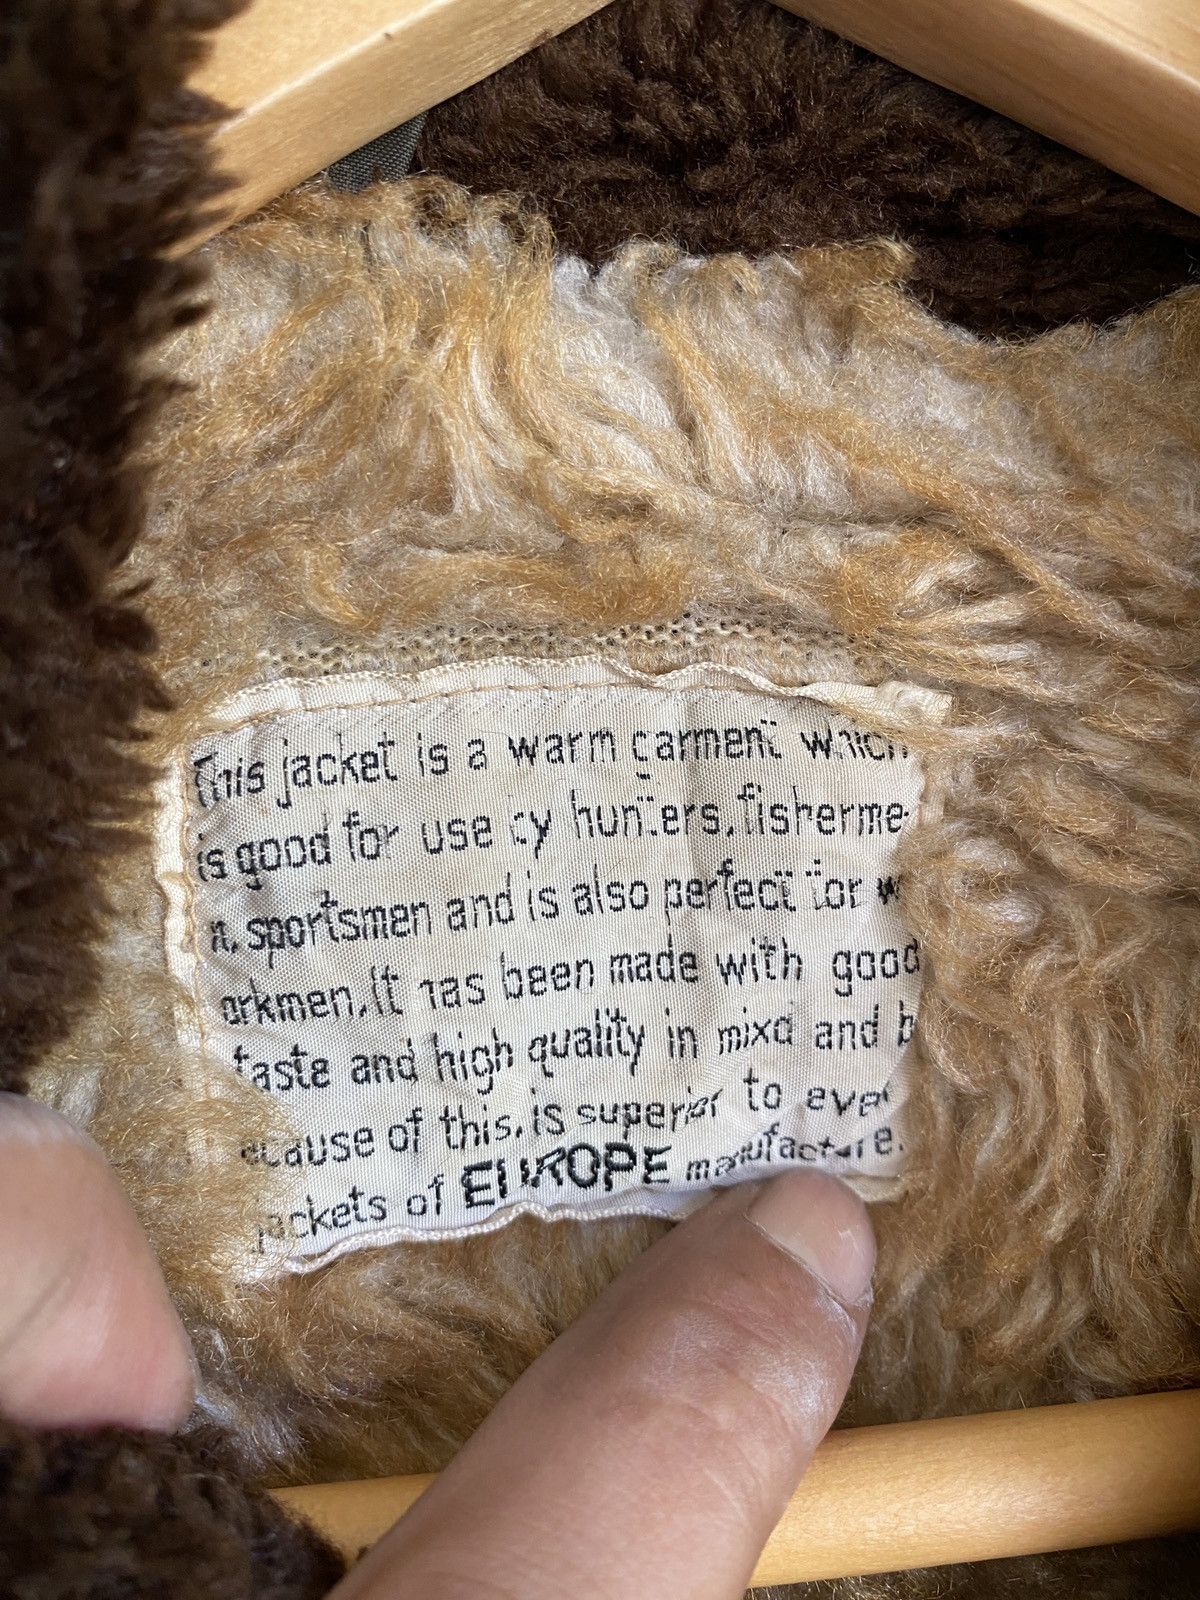 This jacket is a warm garment which
is good for use by hunters, fisherme-
n, sportsmen and is also perfect for w
orkmen, It has been made with good
taste and high quality in mixd and b
ecause of this, is superior to ever
jackets of EUROPE manufacture.